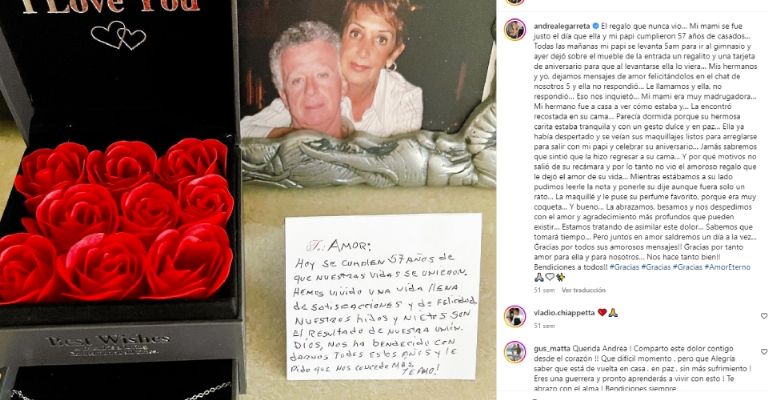 I Love You
Best Wishes
To: AMOR:
HOY SE CUMPLEN 57 AÑOS DE
QUE NUESTRAS VIDAS SE UNIERON.
HEMOS VIVIDO UNA VIDA LLENA
DE SATISFACCIONES Y DE FELICIDAD
NUESTROS HIJOS Y NIETOS SON
EL RESULTADO DE NUESTRA UNIÓN.
DIOS, NOS HA BENDECIDO CON
DARNOS TODOS ESTOS AÑOS Y LE
PIDO QUE NOS CONCEDA MÁS.
TE AMO!
andrealegarreta El regalo que nunca vio... Mi mami se fue
justo el día que ella y mi papi cumplieron 57 años de casados...
Todas las mañanas mi papi se levanta 5am para ir al gimnasio y
ayer dejó sobre el mueble de la entrada un regalito y una tarjeta
de aniversario para que al levantarse ella lo viera... Mis hermanos
y yo, dejamos mensajes de amor felicitándolos en el chat de
nosotros 5 y ella no respondió... Le llamamos y ella, no
respondió... Eso nos inquietó... Mi mami era muy madrugadora...
Mi hermano fue a casa a ver cómo estaba y... La encontró
recostada en su cama... Parecía dormida porque su hermosa
carita estaba tranquila y con un gesto dulce y en paz... Ella ya
había despertado y se veían sus maquillajes listos para arreglarse
para salir con mi papi y celebrar su aniversario... Jamás sabremos
que sintió que la hizo regresar a su cama... Y por qué motivos no
salió de su recámara y por lo tanto no vio el amoroso regalo que
le dejó el amor de su vida... Mientras estábamos a su lado
pudimos leerle la nota y ponerle su dije aunque fuera solo un
rato... La maquillé y le puse su perfume favorito, porque era muy
coqueta... Y bueno... La abrazamos, besamos y nos despedimos
con el amor y agradecimiento más profundos que pueden
existir... Estamos tratando de asimilar este dolor... Sabemos que
tomará tiempo... Pero juntos en amor saldremos un día a la vez...
Gracias por todos sus amorosos mensajes!! Gracias por tanto
amor para ella y para nosotros... Nos hace tanto bien!!
Bendiciones a todos!! #Gracias #Gracias #Gracias #AmorEterno
51 sem Ver traducción
vladio.chiappetta
51 sem
gus_matta Querida Andrea ! Comparto este dolor contigo
desde el corazón !! Que difícil momento , pero que Alegría
saber que está de vuelta en casa . en paz . sin más sufrimiento !
Eres una guerrera y pronto aprenderás a vivir con esto ! Te
abrazo con el alma ! Bendiciones siempre